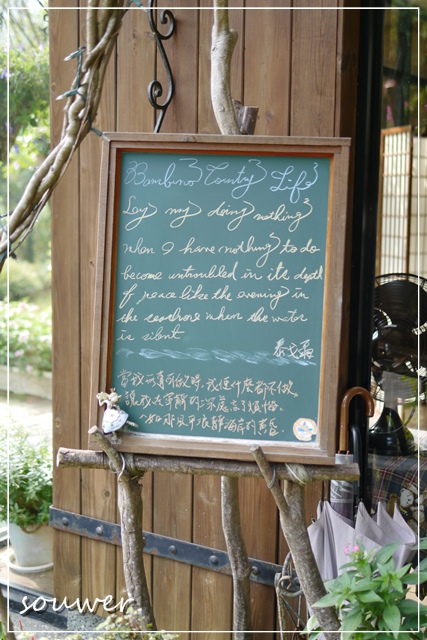 Bambino Country Life
Lay my doing nothing
when I have nothing to do
become untroubled in its depth
of peace like the evening in
the seashore when the water
is silent
泰戈爾
當我没有可做時、我便什麼都不做、
讓我在寧靜的深處
海岸的
souwer